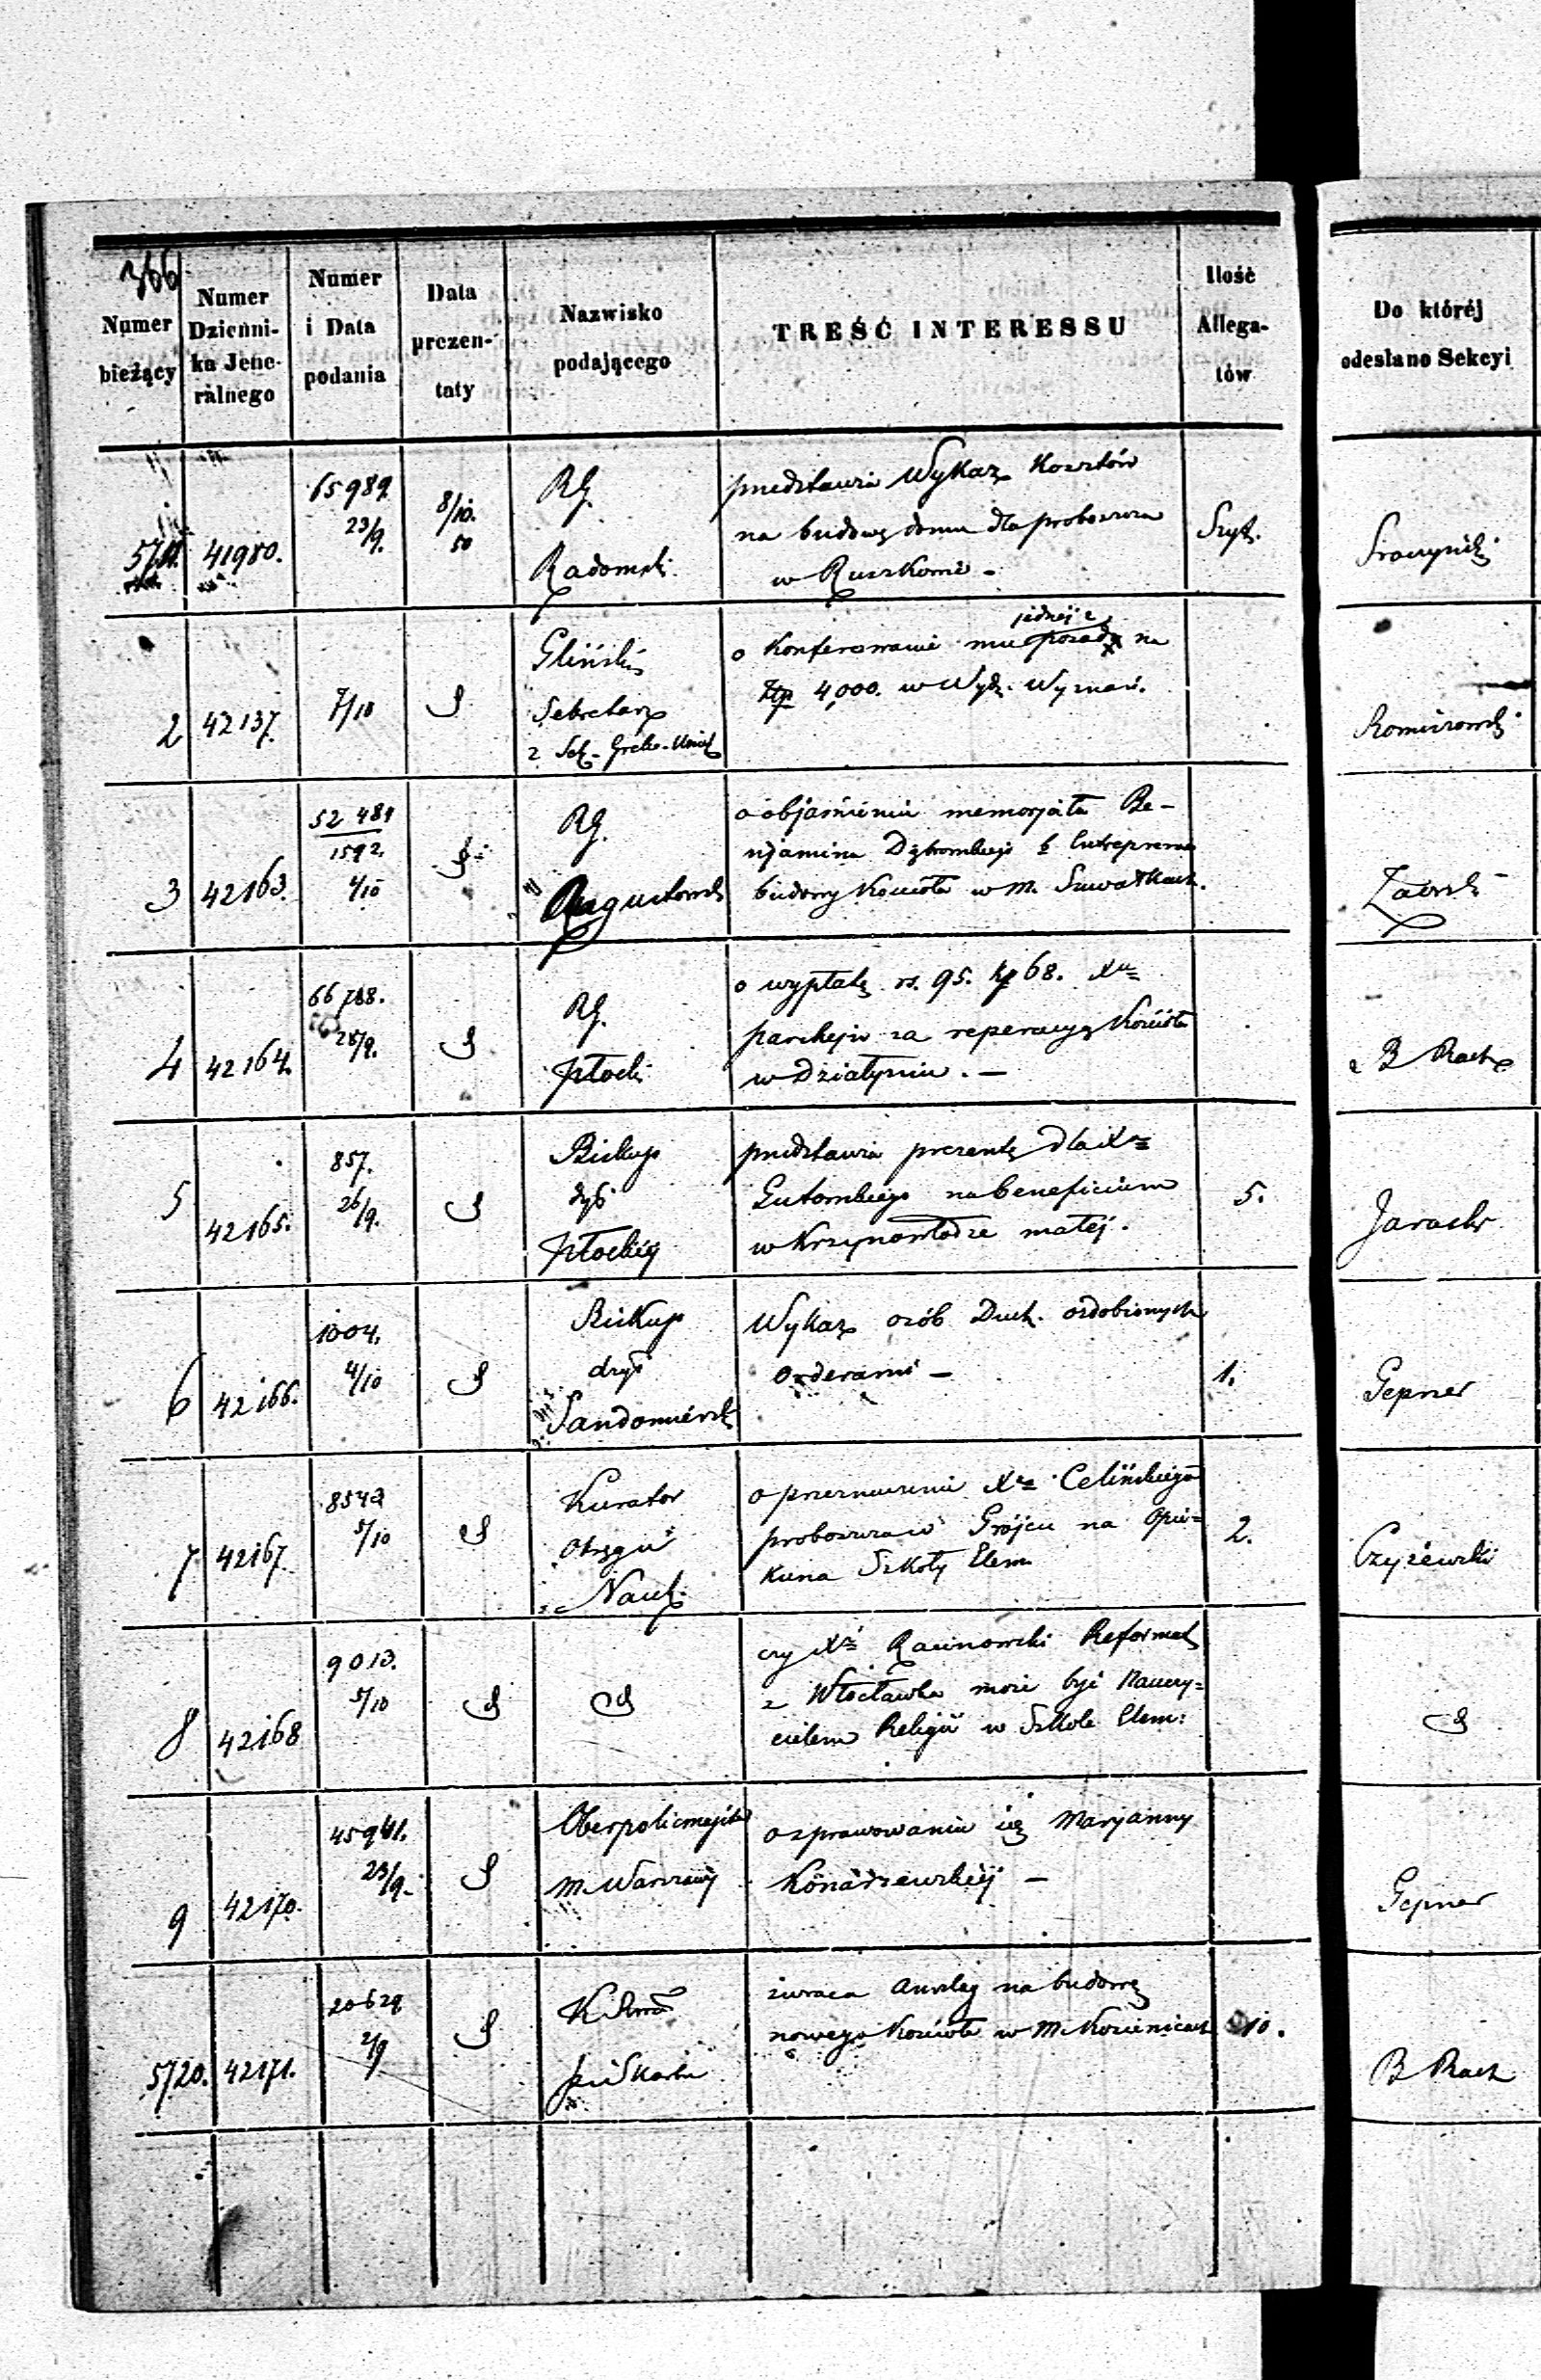 366
Numer bieżący
Numer Dzienni- ka Jene- ralnego
Numer i Data podania
Data prezen- taty
Nazwisko podającego
TREŚĆ INTERESSU
Ilość Allega- tów
Do któréj odesłano Sekcyi
5711. 41980.
65989
23/9.
8/10.
50
RG.
Radomski
przedstawia Wykaz Kosztów
na budowę domu dla proboszcza
w
Szyt.
2 42137.
7/10
Gliński
Sekretarz
z Sek. Greko-Unick
o Konferowanie mu posady na
jednej z
Złp 4,000. w Wydz. Wyznań.
3 42163.
52 481
1592.
4/10
RG.
Augustowski
o objaśnienie memoryału Be-
njamina Dąbrowskiego b Entreprenera
budowy Kościoła w M. Suwałkach.
4 42164.
66 788.
28/9.
RG.
Płocki
o wypłatę rs. 95. kp 68. Xu
za reperacyą Kościoła
w Działyniu. —
B Rach
5 42165.
857.
26/9.
Biskup
dyć
Płockiéj
przedstawia prezentę dla Xa
Gutowskiego na beneficium
w Krzynowłodze małej.
5.
Jarach
6 42166.
1004.
4/10
Biskup
dyć
Sandomiersk
Wykaz osób Duch. ozdobionych
orderami —
1.
Gepner
7 42167.
8542
5/10
Kurator
Okręgu
Nauk.
o przeznaczenie Xa Celińskiego
proboszcza w Grójcu na Opie=
kuna Szkoły Elem
2.
Czyżewski
8 42168
9013.
5/10
czy Xdz Racinowski Reformat
z Włocławka może być Nauczy=
cielem Religii w Szkole Elem:
9 42170.
45941.
23/9.
Oberpolicmajster
M. Warszawy
o sprawowaniu się Maryanny
Konarzewskiéj —
Gepner
5720. 42171.
20629
2/9
K Rząd
P. i Skarbu
zwraca Anszlag na budowę
nowego Kościoła w M. Kozienicach
10.
B Rach